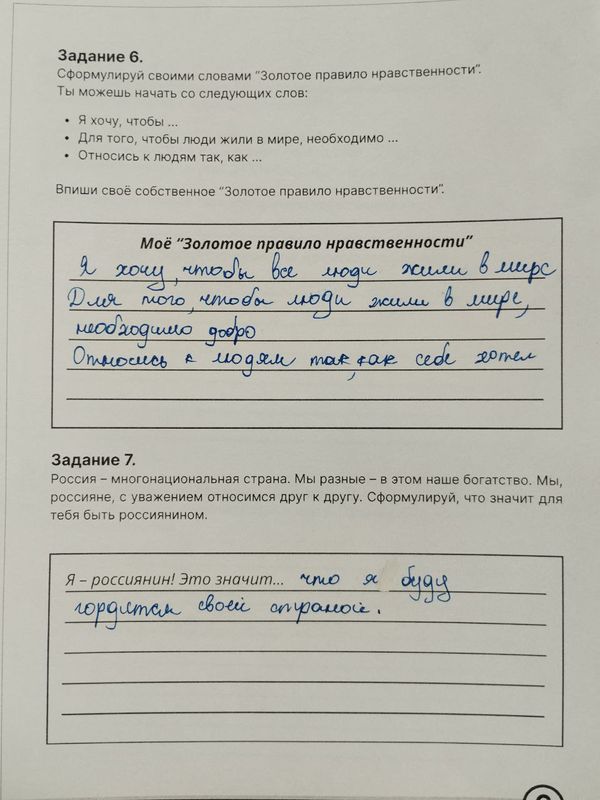 Задание 6.
Сформулируй своими словами “Золотое правило нравственности”.
Ты можешь начать со следующих слов:
• Я хочу, чтобы ...
• Для того, чтобы люди жили в мире, необходимо ...
• Относись к людям так, как ...
Впиши своё собственное “Золотое правило нравственности”.
Моё “Золотое правило нравственности”
Я хочу, чтобы все люди жили в мире
Для того, чтобы люди жили в мире,
необходимо добро
Относись к людям так, как себе хотел
Задание 7.
Россия – многонациональная страна. Мы разные – в этом наше богатство. Мы,
россияне, с уважением относимся друг к другу. Сформулируй, что значит для
тебя быть россиянином.
Я – россиянин! Это значит... что я буду
гордится своей страной.